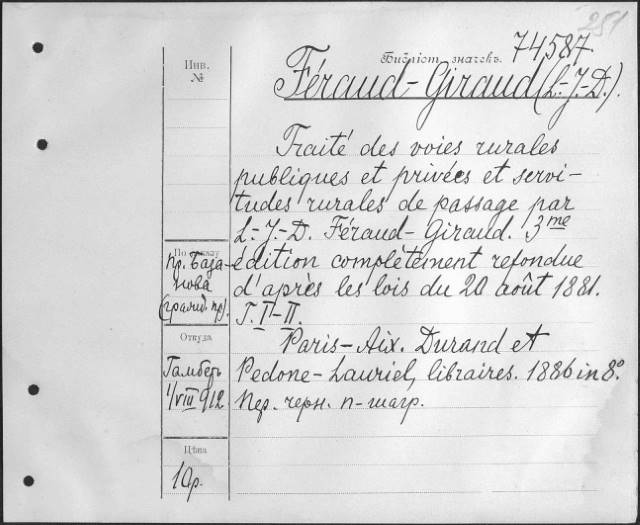 251
74587
Инв.
№
Библіот. значекъ.
Féraud-Giraud (L.-J.-D.).
Traité des voies rurales
publiques et privées et servi-
tudes rurales de passage par
L.-J.-D. Féraud-Giraud. 3me
édition complètement refondue
d'après les lois du 20 août 1881.
T. I-II.
Paris-Aix. Durand et
Pedone-Lauriel, libraires. 1886 in 8°.
Пер. черн. п-шагр.
По заказу
пр. База-
нова
(гражд. пр).
Откуда
Гамберъ
1/VIII 912
Цѣна
10р.